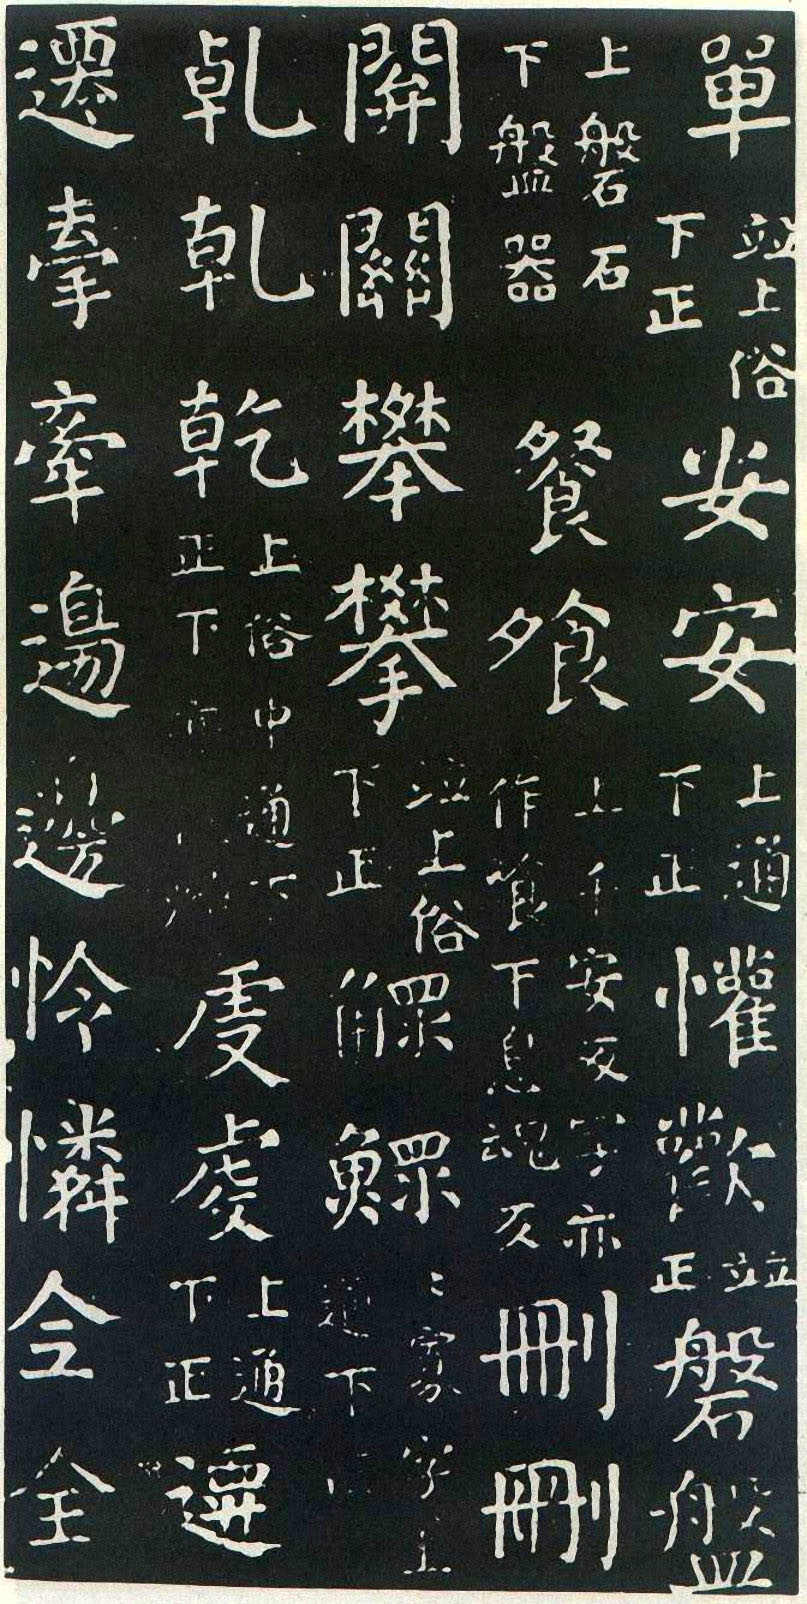 單 並上俗下正 安安 上通下正 懽歡 並正 磐盤
上磐石下盤器 餐飡 上千安反字亦作喰下息魂反 刪刪
開關 攀攀 並上俗下正 鰥鰥 字上通下
乹乹乾 上俗中通下正下 虔虔 上通下正 遷
遷 牽牽 邊邊 怜憐 仝全